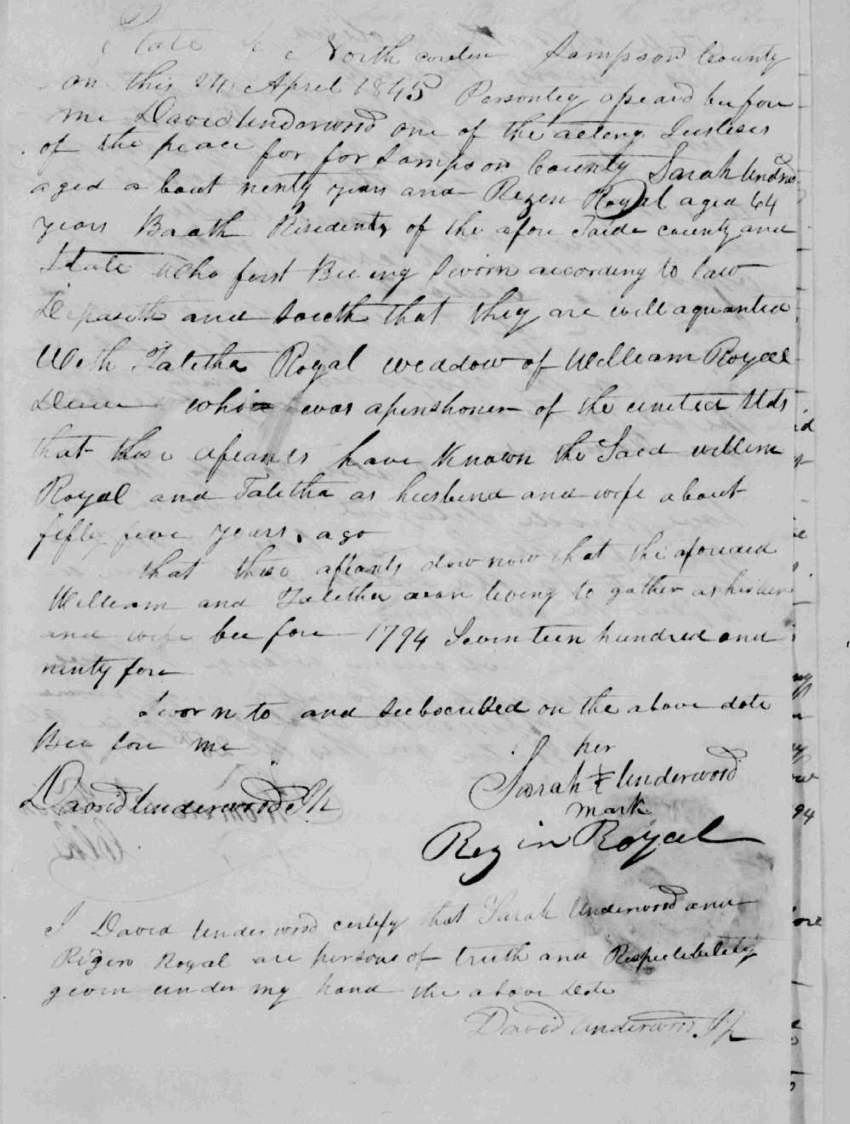 State of North carolin Sampson County
on this 24 April 1845 Personley apeard before
me David Underwood one of the acteng Justises
of the peace for for Sampson County Sarah Undwo
aged a bout ninty years and Regen Royal aged 64
years Baath Residents of the afore Saide county and
State who first Being Sworn according to law
Deposeth and saieth that they are will aquanted
With Talitha Royal weddow of William Royal
who was a penshoner of the united Stds
that these afeants have known the Saed willem
Royal and Talitha as husbend and wife about
fifty five years ago
that these afiants dow now that the aforesaed
William and Talitha wear liveng to gather as husben
and wife bee fore 1794 Seventeen hundred and
ninty fore
Sworn to and Seebscribed on the above date
Bee fore me
her
David Underwood JP
Sarah X Underwood
mark
Regin Royal
I David Underwood certefy that Sarah Underwood and
Rigen Royal are persons of truth and Respectibility
geven under my hand the above date
David Underwood JP